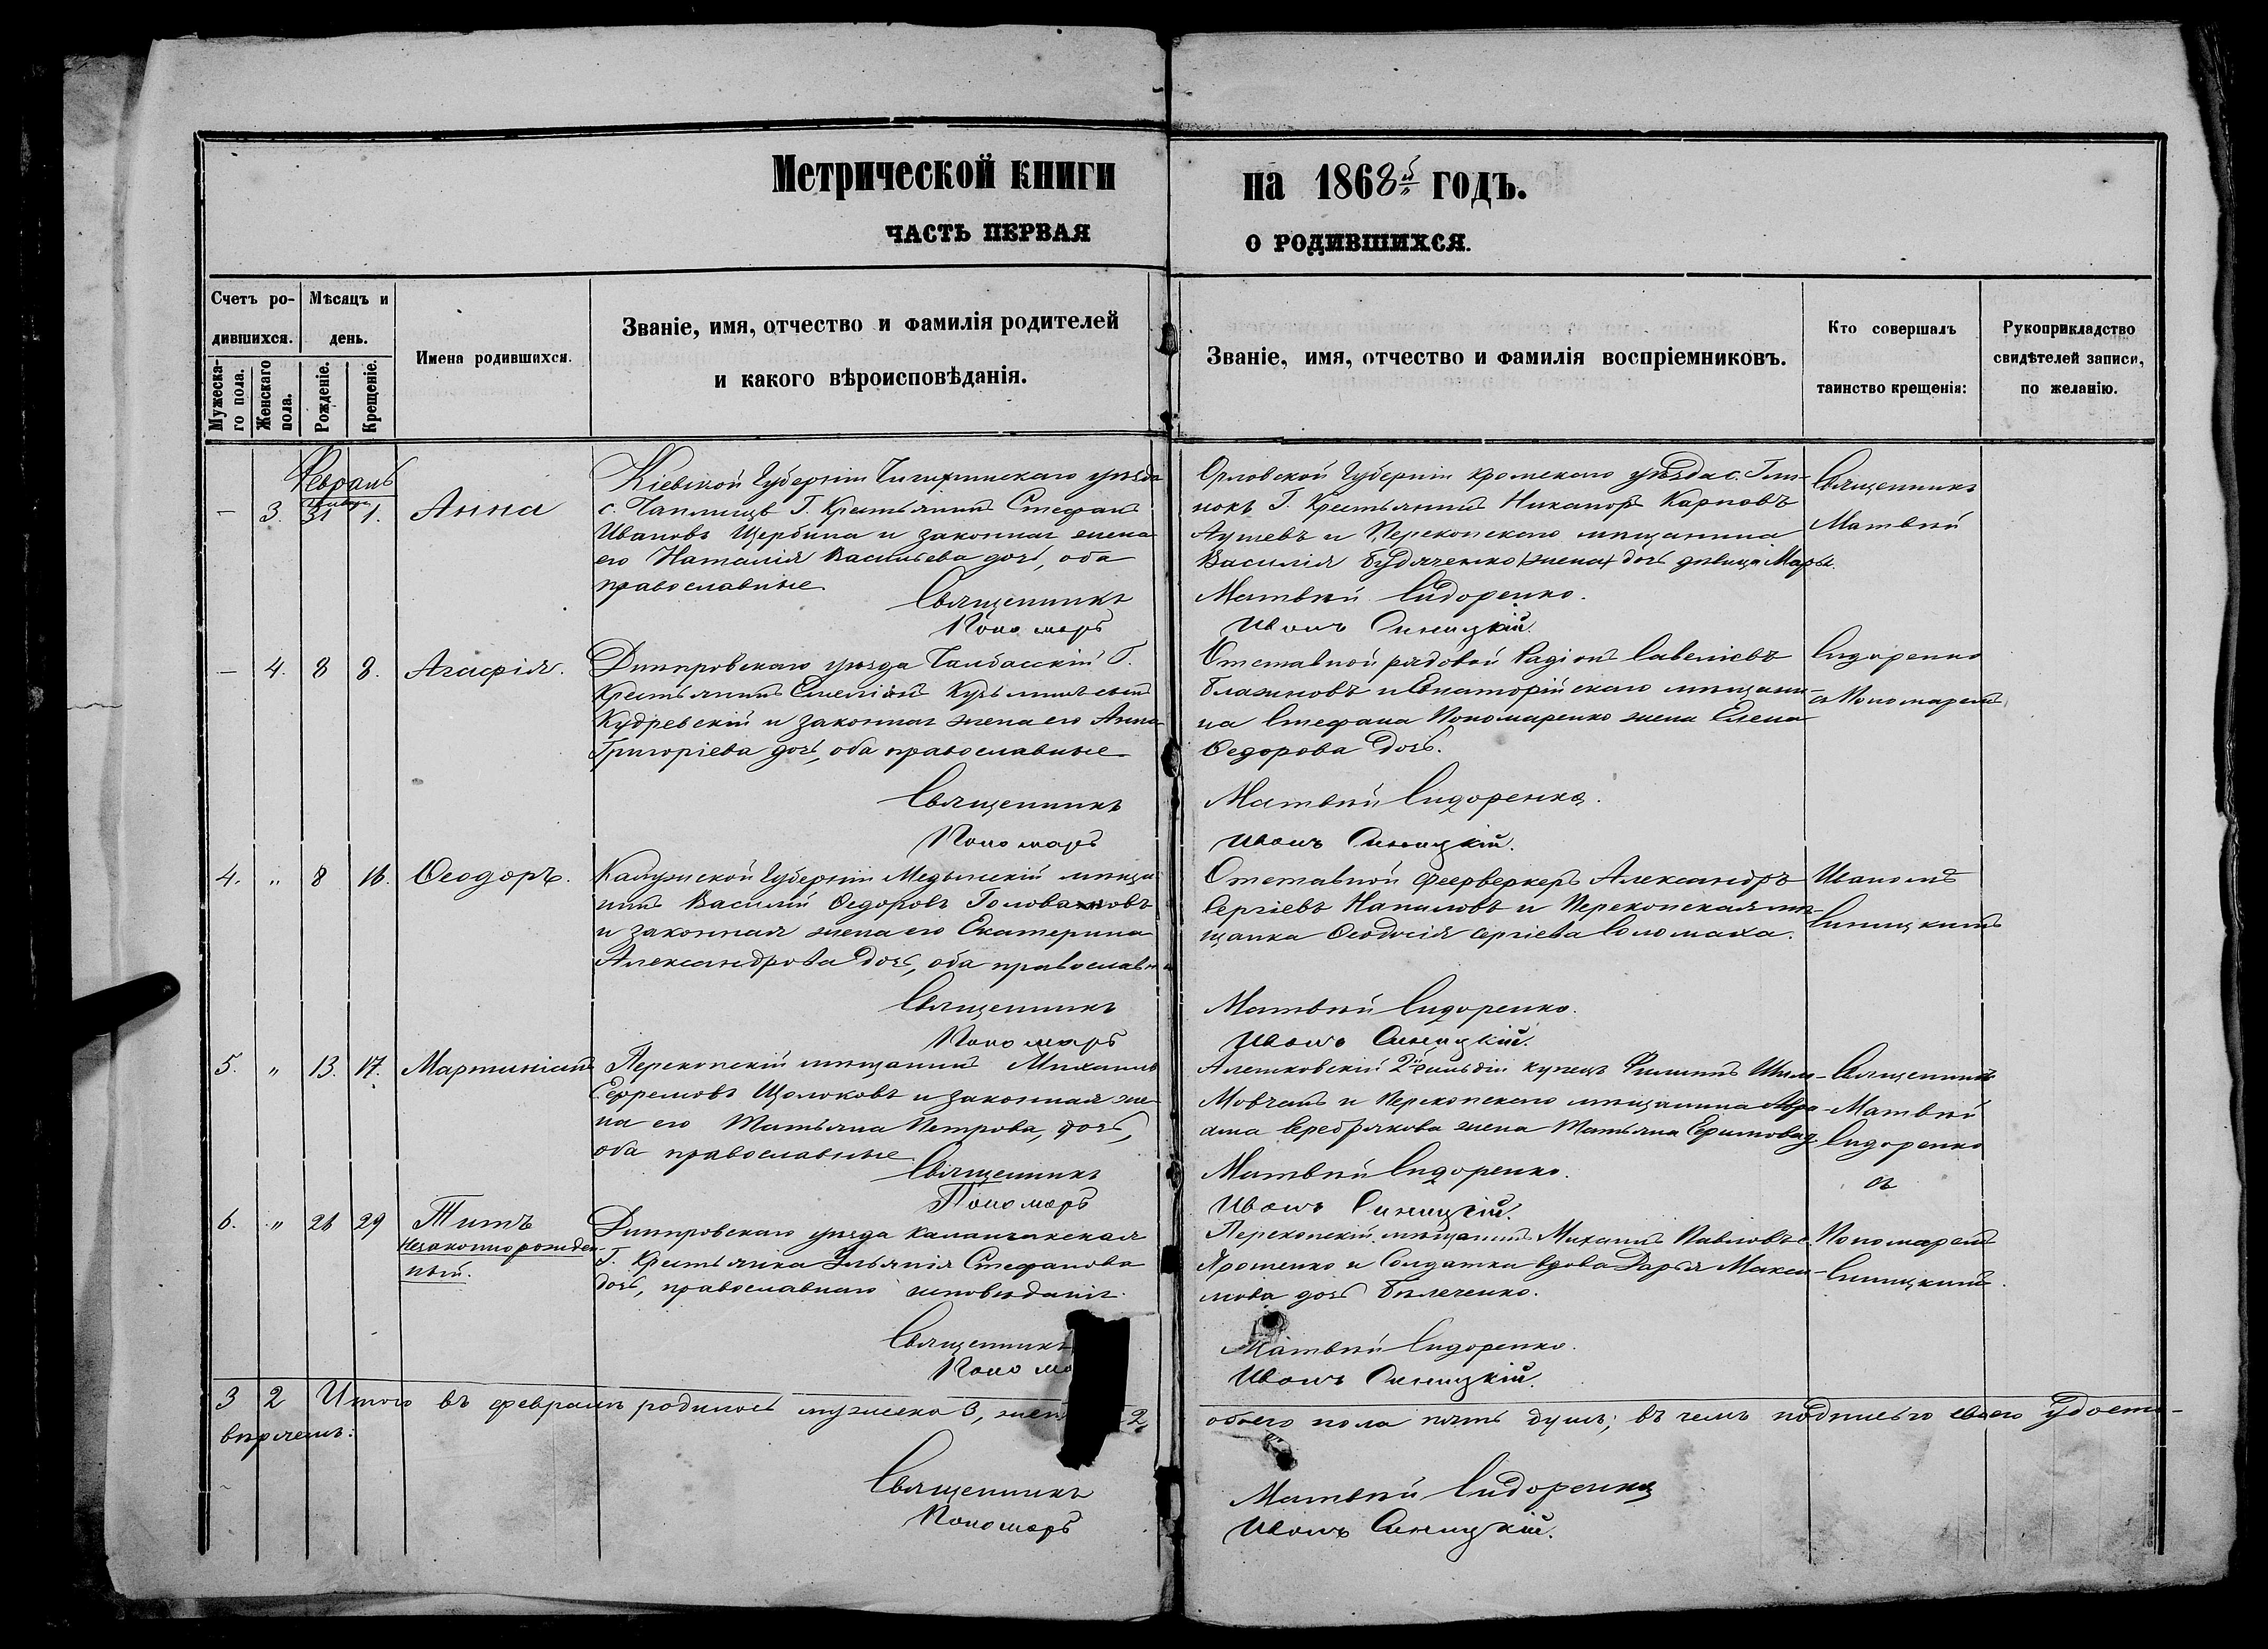 Метрической книги
на 1868й годъ.
ЧАСТЬ ПЕРВАЯ
О РОДИВШИХСЯ.
Счетъ ро-
дившихся.
Мѣсяцъ и
день.
Мужеска-
го пола.
Женскаго
пола.
Рожденіе.
Крещеніе.
Имена родившихся.
Званіе, имя, отчество и фамилія родителей
и какого вѣроисповѣданія.
Званіе, имя, отчество и фамилія воспріемниковъ.
Кто совершалъ
таинство крещенія:
Рукоприкладство
свидѣтелей записи,
по желанію.
Февраль
Января
– 3. 31 1. Анна
Кіевской Губерніи Чигиринскаго уѣзда
с. Г. Крестьянинъ Стефанъ
Ивановъ Щербина и законная жена
его Наталія Васильева дочь, оба
православные
Священникъ
Пономарь
Орловской Губерніи Кромскаго уѣзда с. Гли-
нокъ Г. Крестьянинъ Никаноръ Карповъ
и Перекопскаго мѣщанина
Василія Будяченко (жена) дочь дѣвица Марья.
Матвѣй Сидоренко.
Иванъ Синицкій.
Священникъ
Матвѣй
– 4. 8 8. Агафія.
Днѣпровскаго уѣзда Чалбасскій Г.
Крестьянинъ Кузьминъ сынъ
Кудревскій и законная жена его Анна
Григоріева дочь, оба православные
Священникъ
Пономарь
Отставной рядовой Савеліевъ
и Евпаторійскаго мѣщани-
на Стефана Пономаренко жена Елена
Ѳедорова дочь.
Матвѣй Сидоренко.
Иванъ Синицкій.
Сидоренко
съ Пономаремъ
4. „ 8 16. Ѳеодоръ.
Калужской Губерніи Медынскій мѣща-
нинъ Василій Ѳедоровъ
и законная жена его Екатерина
Александрова дочь, оба православн
Священникъ
Пономарь
Отставной фейерверкеръ Александръ
Сергіевъ и Перекопская мѣ-
щанка Ѳеодосія Сергіева Соломаха.
Матвѣй Сидоренко.
Иванъ Синицкій.
Иваномъ
Синицкимъ
5. „ 13. 17. Мартиніанъ
Перекопскій мѣщанинъ Михаилъ
Ефремовъ Щолоковъ и законная же-
на его Татьяна Петрова, дочь,
оба православные
Священникъ
Пономарь
Алешковскій 2й гильдіи купецъ Филиппъ
Мовчанъ и Перекопскаго мѣщанина
Серебрякова жена Татьяна
Матвѣй Сидоренко.
Иванъ Синицкій.
Священникъ
Матвѣй
Сидоренко
съ
6. „ 26 29 Титъ
Незаконнорожден-
ный.
Днѣпровскаго уѣзда Каланчакская
Г. Крестьянка Ульянія Стефанова
дочь, православнаго исповѣданія.
Священникъ
Поном
Перекопскій мѣщанинъ Михаилъ Павловъ с.
Ярошенко и Солдатка вдова Дарья Макси-
мова дочь Бѣлеченко.
Матвѣй Сидоренко.
Иванъ Синицкій.
Пономаремъ
Синицкимъ.
3 2 Итого въ февралѣ родилось мужеска 3, жен 2
обоего пола пять душъ; въ чемъ подписью своею удосто-
вѣряемъ:
Священникъ
Пономарь
Матвѣй Сидоренко
Иванъ Синицкій.